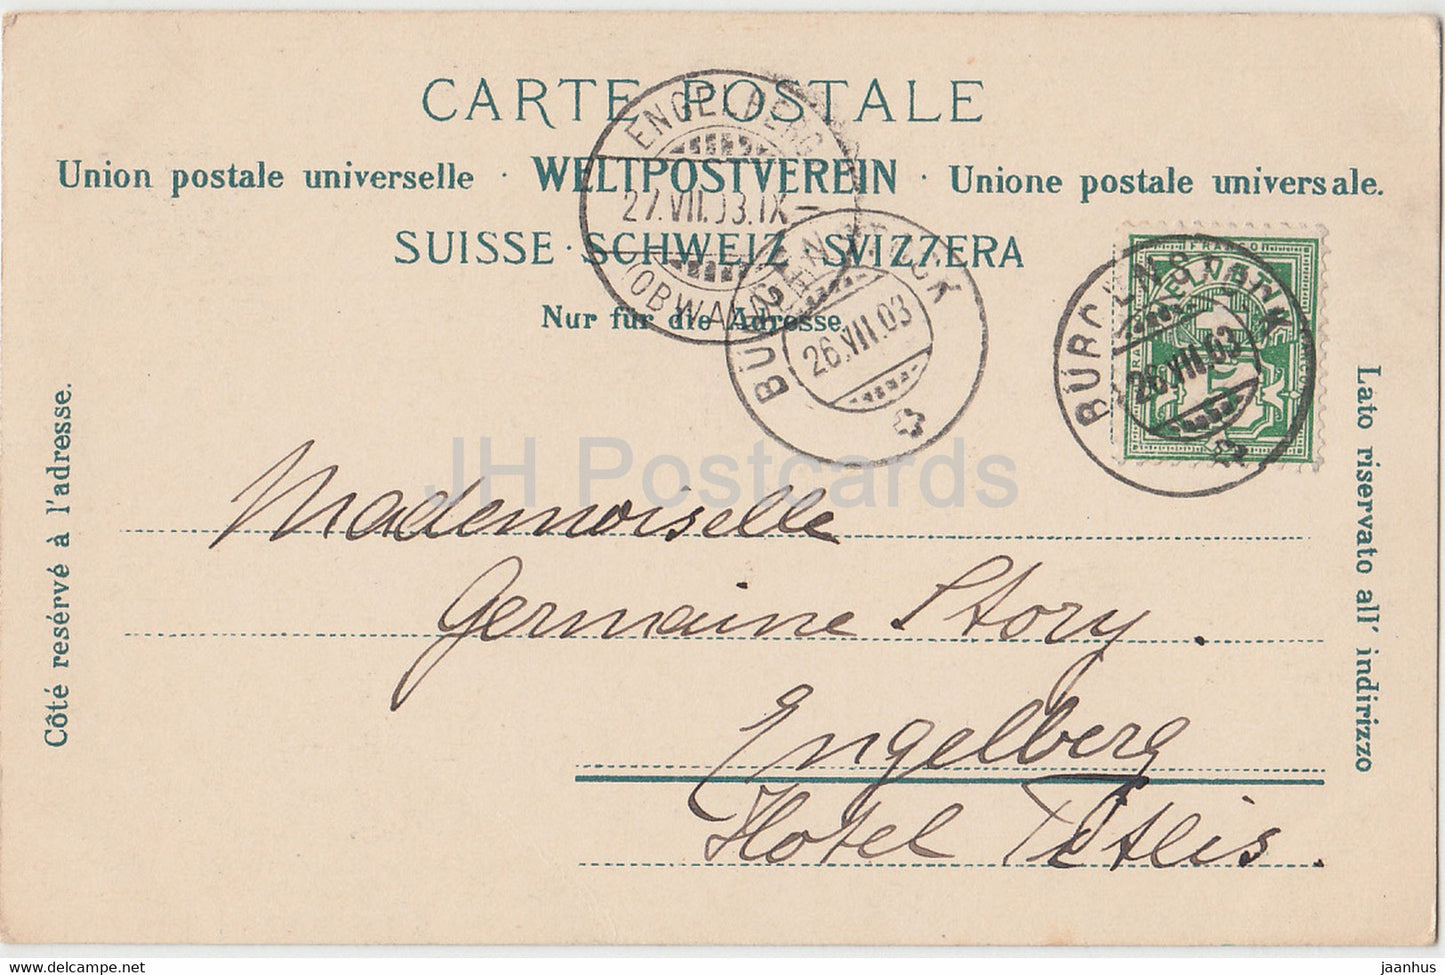 CARTE POSTALE
Union postale universelle · WELTPOSTVEREIN · Unione postale universale.
SUISSE · SCHWEIZ · SVIZZERA
Nur für die Adresse
ENGELBERG
27.VII.03.IX–
(OBWALDEN)
BÜRGENSTOCK
26.VII.03
BÜRGENSTOCK
26.VII.03
FRANCO
HELVETIA
Côté resérvé à l'adresse.
Lato riservato all' indirizzo
JH Postcards
Mademoiselle
Germaine Story.
Engelberg
Hotel Titlis.
delcampe.net
jaanhus